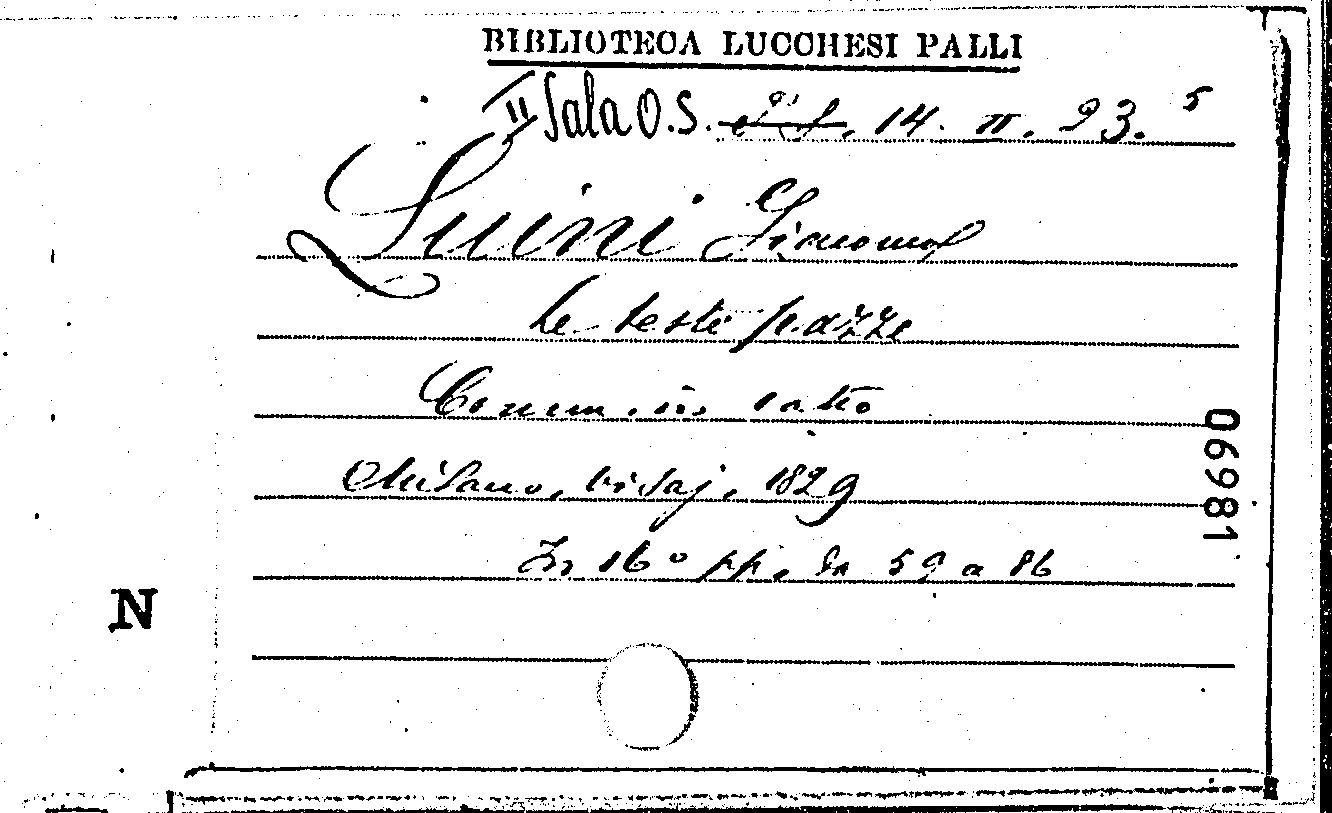 BIBLIOTECA LUCCHESI PALLI
II Sala O.S. 14. II. 23. 5
Luini Giacomo
Le teste pazze
Comm. in 1 atto
Milano, Visaj, 1829
In 16° pp. da 59 a 86
06981
N